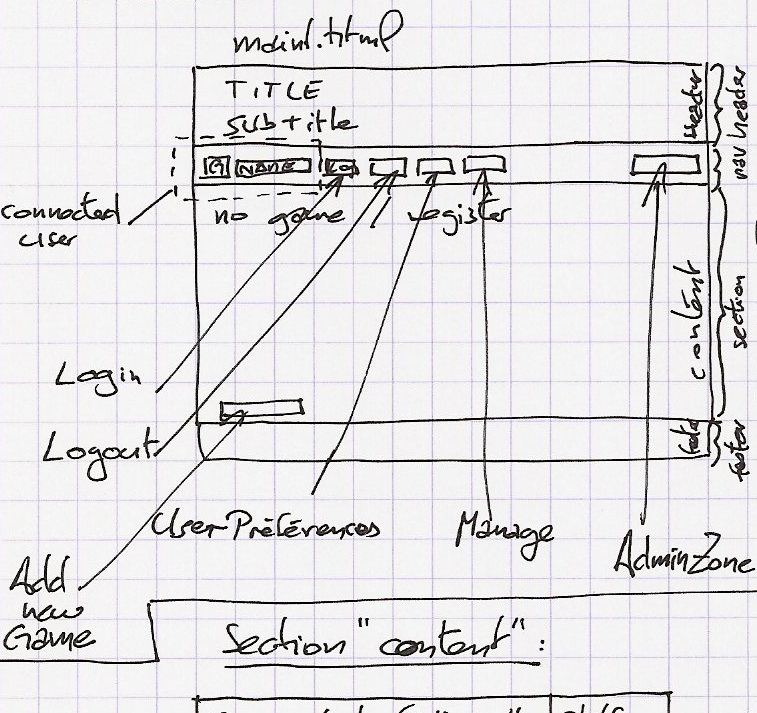 main.html
TITLE
Subtitle
Header
nav header
NAME
connected
user
no game / register
content
section
Login
Logout
footer
User Préférences
Manage
AdminZone
Add
new
Game
Section "content" :